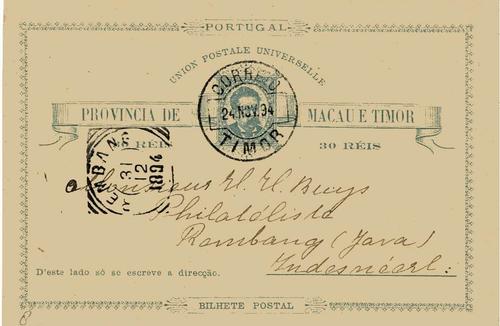 PORTUGAL
UNION POSTALE UNIVERSELLE
PROVINCIA DE MACAU E TIMOR
30 RÉIS 30 RÉIS
CORREIO
24.NOV.94
TIMOR
REMBANG
31
12
1894
Monsieur H. H. Buys
Philatéliste
Rembang (Java)
Indesnéerl:
D'este lado só se escreve a direcção.
BILHETE POSTAL